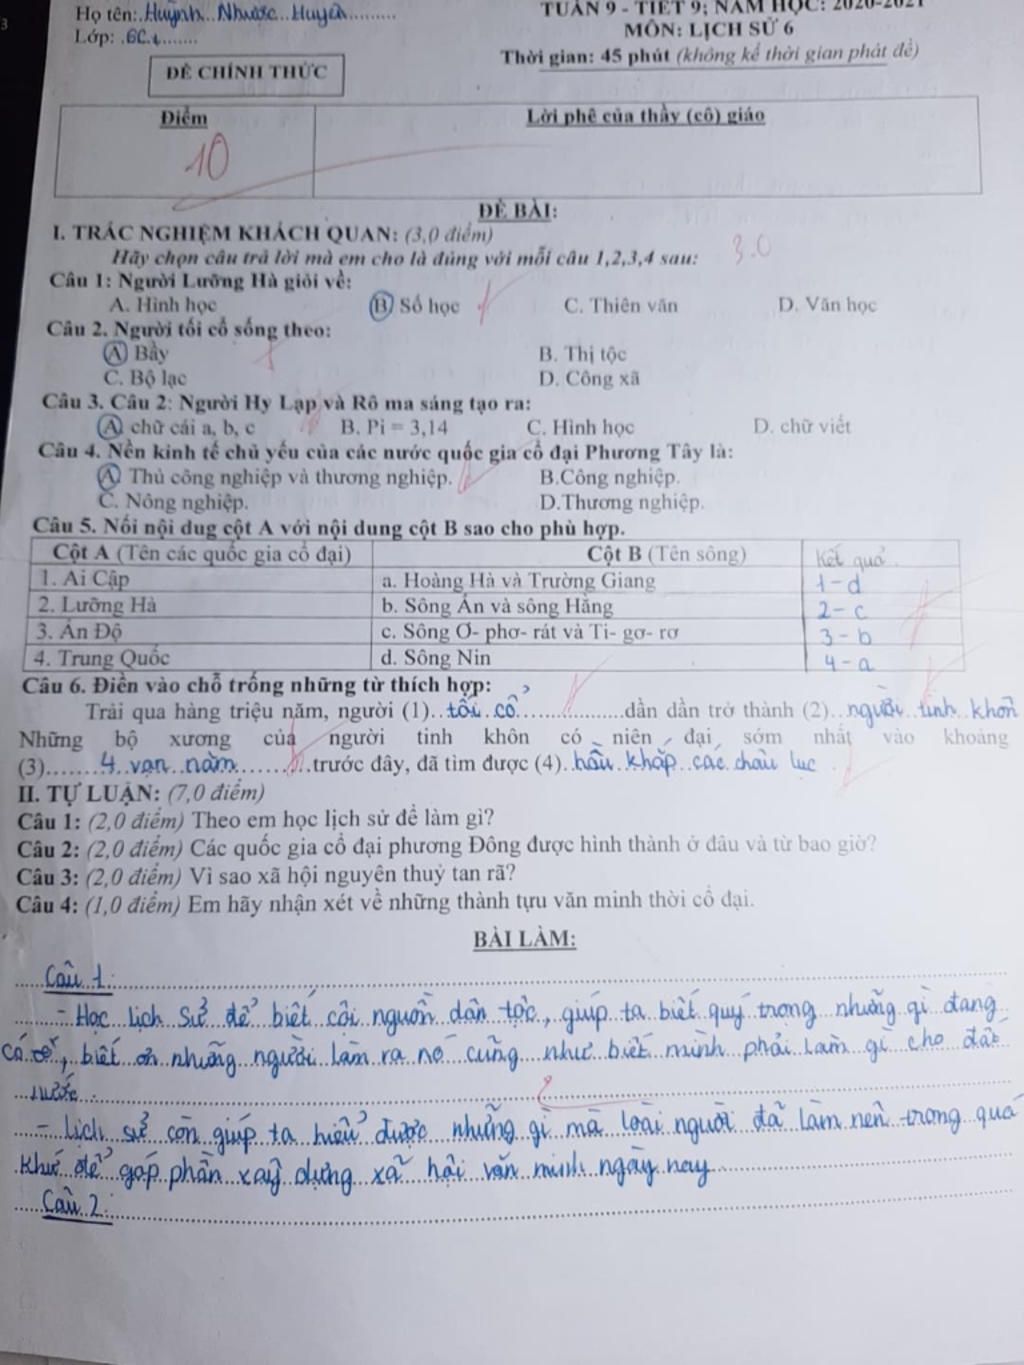 Họ tên: Huỳnh Như Huyền
TUẦN 9 - TIẾT 9; NĂM HỌC: 2020-2021
Lớp: 6C
MÔN: LỊCH SỬ 6
Thời gian: 45 phút (không kể thời gian phát đề)
ĐỀ CHÍNH THỨC
Điểm
Lời phê của thầy (cô) giáo
10
ĐỀ BÀI:
I. TRẮC NGHIỆM KHÁCH QUAN: (3,0 điểm)
3.0
Hãy chọn câu trả lời mà em cho là đúng với mỗi câu 1,2,3,4 sau:
Câu 1: Người Lưỡng Hà giỏi về:
A. Hình học B. Số học C. Thiên văn D. Văn học
Câu 2. Người tối cổ sống theo:
A. Bầy B. Thị tộc
C. Bộ lạc D. Công xã
Câu 3. Câu 2: Người Hy Lạp và Rô ma sáng tạo ra:
A. chữ cái a, b, c B. Pi = 3,14 C. Hình học D. chữ viết
Câu 4. Nền kinh tế chủ yếu của các nước quốc gia cổ đại Phương Tây là:
A. Thủ công nghiệp và thương nghiệp. B.Công nghiệp.
C. Nông nghiệp. D.Thương nghiệp.
Câu 5. Nối nội dug cột A với nội dung cột B sao cho phù hợp.
Cột A (Tên các quốc gia cổ đại) Cột B (Tên sông) Kết quả
1. Ai Cập a. Hoàng Hà và Trường Giang 1-d
2. Lưỡng Hà b. Sông Ấn và sông Hằng 2-c
3. Ấn Độ c. Sông Ơ- phơ- rát và Ti- gơ- rơ 3-b
4. Trung Quốc d. Sông Nin 4-a
Câu 6. Điền vào chỗ trống những từ thích hợp:
Trải qua hàng triệu năm, người (1)..tối cổ..dần dần trở thành (2)..người tinh khôn
Những bộ xương của người tinh khôn có niên đại sớm nhất vào khoảng
(3)....4 vạn năm....trước đây, đã tìm được (4)..hầu khắp các châu lục
II. TỰ LUẬN: (7,0 điểm)
Câu 1: (2,0 điểm) Theo em học lịch sử để làm gì?
Câu 2: (2,0 điểm) Các quốc gia cổ đại phương Đông được hình thành ở đâu và từ bao giờ?
Câu 3: (2,0 điểm) Vì sao xã hội nguyên thuỷ tan rã?
Câu 4: (1,0 điểm) Em hãy nhận xét về những thành tựu văn minh thời cổ đại.
BÀI LÀM:
Câu 1:
- Học lịch sử để biết cội nguồn dân tộc, giúp ta biết quý trọng những gì đang
có, biết ơn những người làm ra nó cũng như biết mình phải làm gì cho đất
nước.
- Lịch sử còn giúp ta hiểu được những gì mà loài người đã làm nên trong quá
khứ để góp phần xây dựng xã hội văn minh ngày nay
Câu 2: